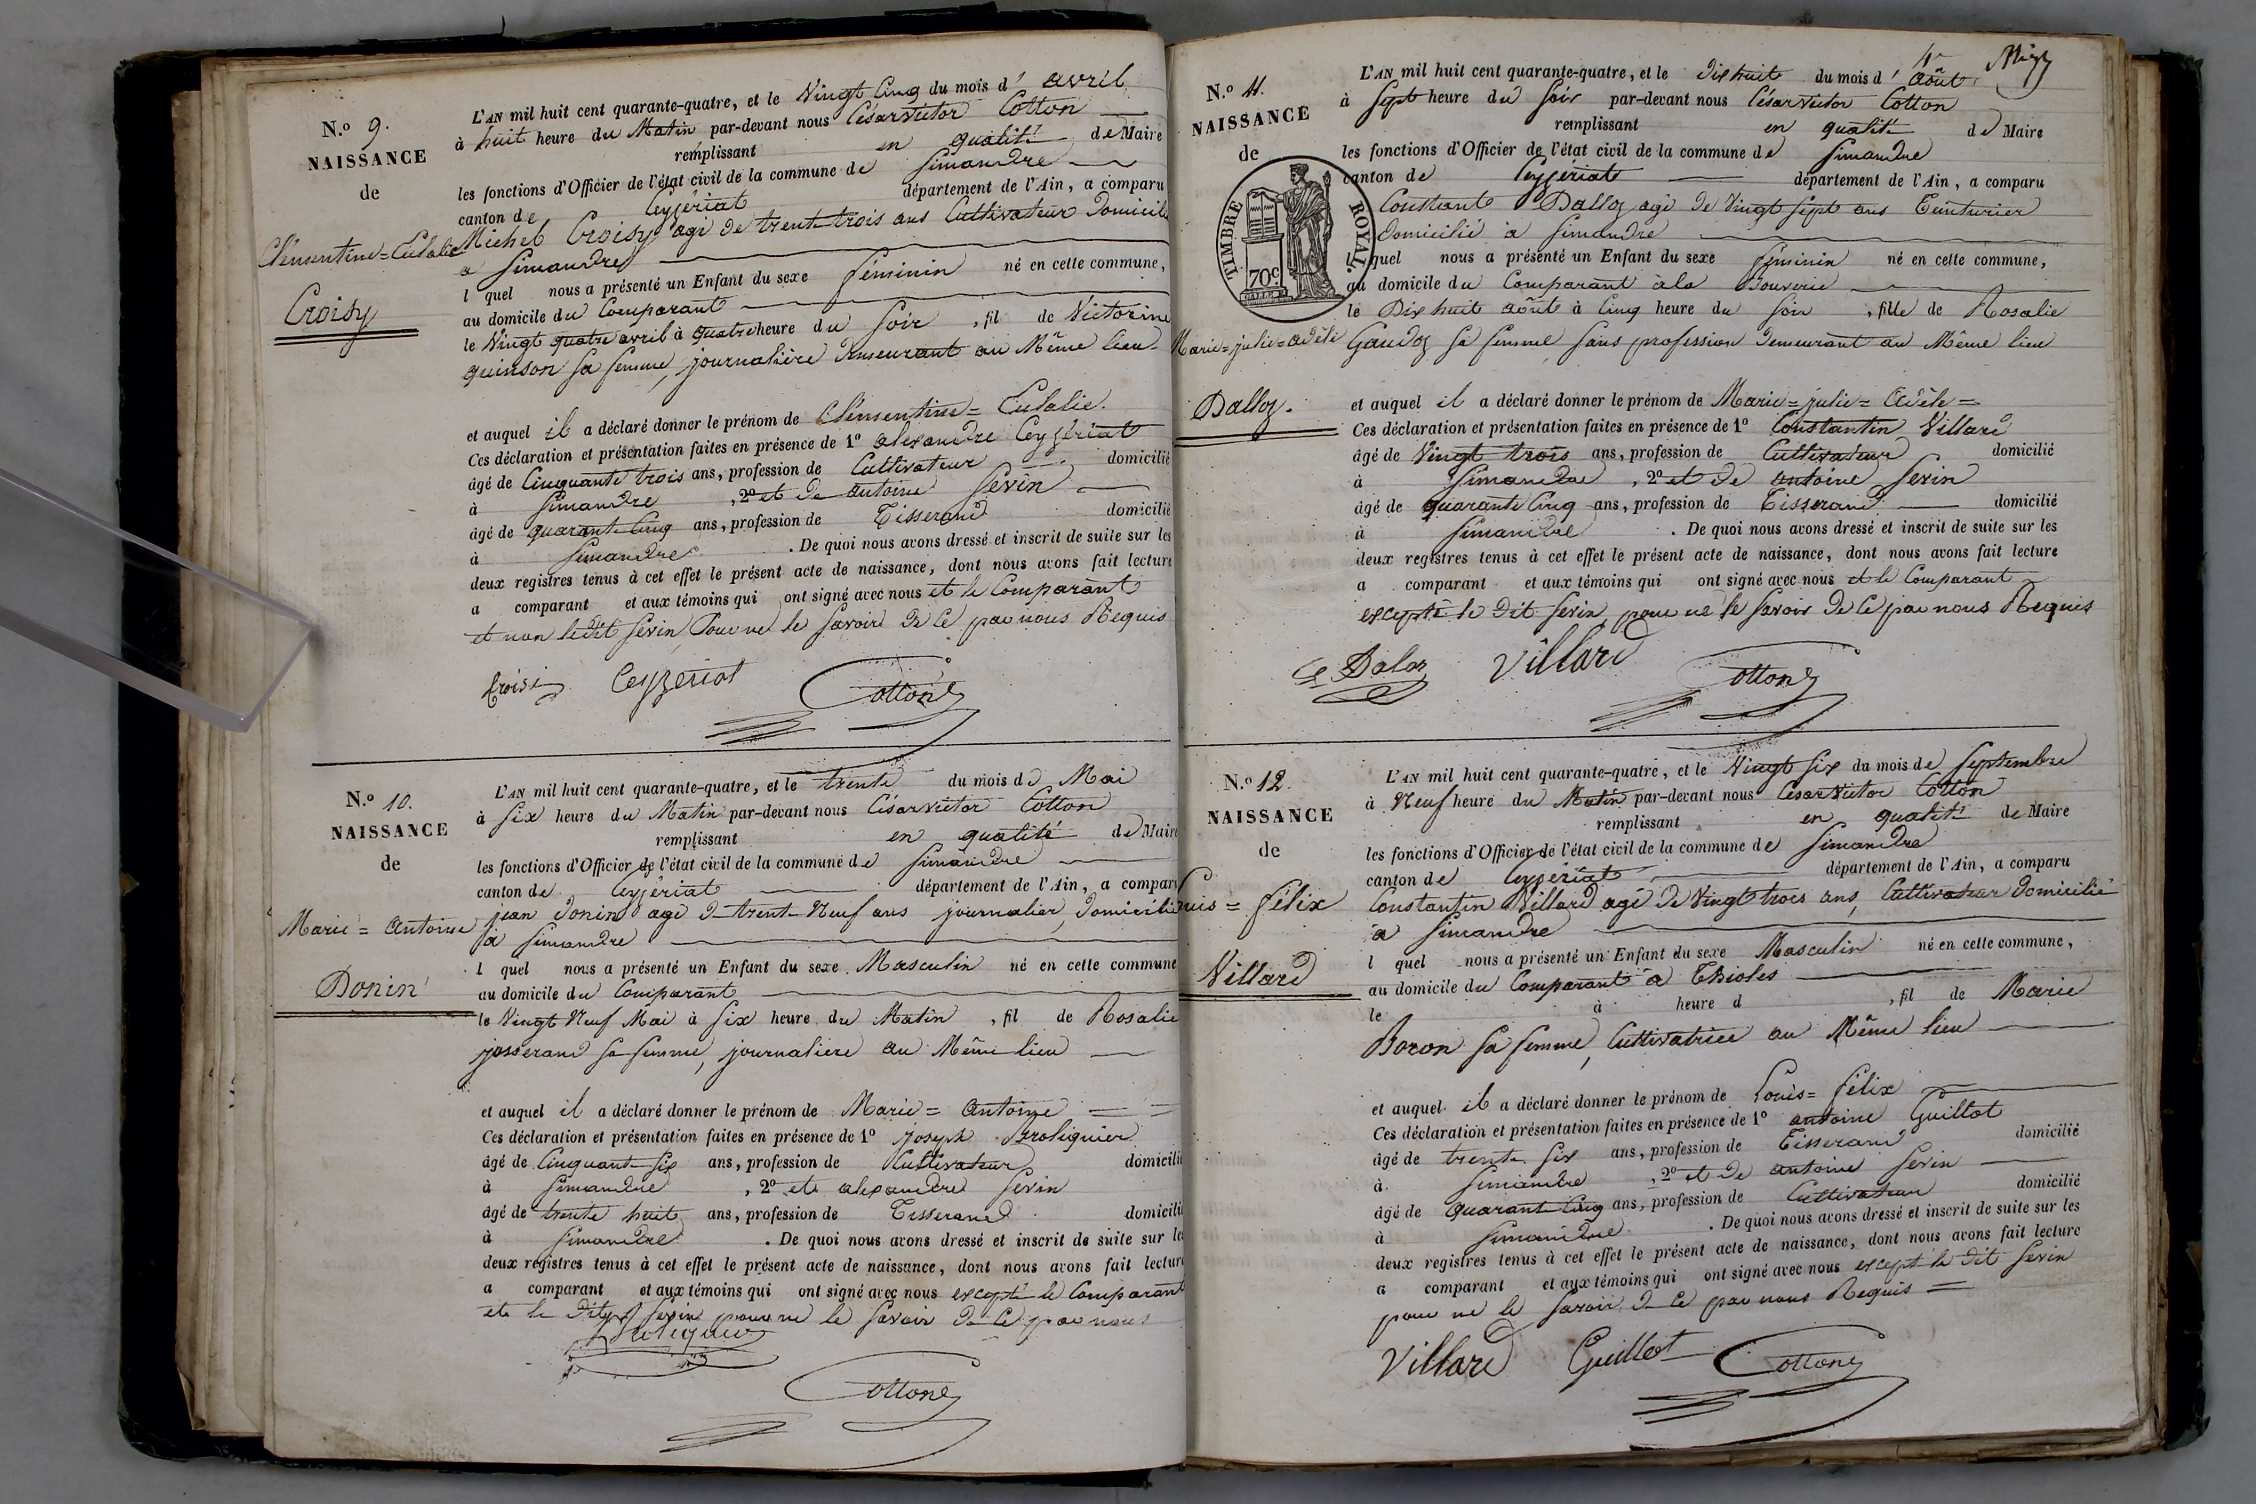 N.º 9.
NAISSANCE
de
Clémentine=Eulalie
Croisy
L'AN mil huit cent quarante-quatre, et le Vingt Cinq du mois d' avril
à huit heure du Matin par-devant nous César victor Cotton
remplissant en qualité de Maire
les fonctions d'Officier de l'état civil de la commune de Simandre
canton de Ceyzériat département de l'Ain, a comparu
Michel Croisy agé de trente trois ans Cultivateur domicilié
a Simandre
l quel nous a présenté un Enfant du sexe féminin né en cette commune,
au domicile du Comparant
le Vingt quatre avril à quatre heure du Soir , fil de Victorine
quinson sa femme, journalière demeurant au Même lieu
et auquel il a déclaré donner le prénom de Clémentine=Eulalie.
Ces déclaration et présentation faites en présence de 1º alexandre Ceyzériat
âgé de Cinquante trois ans, profession de Cultivateur domicilié
à Simandre , 2º et de antoine Sevin
âgé de quarante Cinq ans, profession de Tisserand domicilié
à Simandre . De quoi nous avons dressé et inscrit de suite sur les
deux registres tenus à cet effet le présent acte de naissance, dont nous avons fait lecture
a comparant et aux témoins qui ont signé avec nous et le Comparant
et non ledit Sevin Pour ne le Savoir de Ce par nous Requis
Croisi Ceyzeriat Cotton
N.º 10.
NAISSANCE
de
Marie = Antoine
Donin
L'AN mil huit cent quarante-quatre, et le trente du mois de Mai
à Six heure du Matin par-devant nous César victor Cotton
remplissant en qualité de Maire
les fonctions d'Officier de l'état civil de la commune de Simandre
canton de Ceyzériat département de l'Ain, a comparu
jean Donin agé de trente Neuf ans journalier, domicilié
à Simandre
l quel nous a présenté un Enfant du sexe Masculin né en cette commune
au domicile du Comparant
le Vingt Neuf Mai à Six heure du Matin , fil de Rosalie
josserand sa femme, journaliere au Même lieu
et auquel il a déclaré donner le prénom de Marie = Antoine
Ces déclaration et présentation faites en présence de 1º joseph Broliquier
âgé de Cinquante Six ans, profession de Cultivateur domicilié
à Simandre , 2º et alexandre Sevin
âgé de trente huit ans, profession de Tisserand domicilié
à Simandre . De quoi nous avons dressé et inscrit de suite sur les
deux registres tenus à cet effet le présent acte de naissance, dont nous avons fait lecture
a comparant et aux témoins qui ont signé avec nous excepté le Comparant
et le Dit Sevin pour ne le Savoir de Ce par nous
Broliquier
Cotton
Mizy
N.º 11.
NAISSANCE
de
TIMBRE ROYAL.
70c
Marie=julie=adèle
Dalloz.
L'AN mil huit cent quarante-quatre, et le Dix huit du mois d' Août
à Sept heure du Soir par-devant nous César victor Cotton
remplissant en qualité de Maire
les fonctions d'Officier de l'état civil de la commune de Simandre
canton de Ceyzériat département de l'Ain, a comparu
Constant Dalloz agé de Vingt Sept ans Teinturier
domicilié à Simandre
l quel nous a présenté un Enfant du sexe féminin né en cette commune,
au domicile du Comparant à la Bouverie
le Dix huit août à Cinq heure du Soir , fille de Rosalie
Gaudoz sa femme, Sans profession demeurant au Même lieu
et auquel il a déclaré donner le prénom de Marie=julie=Adèle=
Ces déclaration et présentation faites en présence de 1º Constantin Villard
âgé de Vingt trois ans, profession de Cultivateur domicilié
à Simandre , 2º et de antoine Sevin
âgé de quarante Cinq ans, profession de Tisserand domicilié
à Simandre . De quoi nous avons dressé et inscrit de suite sur les
deux registres tenus à cet effet le présent acte de naissance, dont nous avons fait lecture
a comparant et aux témoins qui ont signé avec nous et le Comparant
excepté le Dit Sevin, pour ne le Savoir De Ce par nous Requis
Ct Daloz Villard Cotton
N.º 12.
NAISSANCE
de
Louis = félix
Villard
L'AN mil huit cent quarante-quatre, et le Vingt Six du mois de Septembre
à Neuf heure du Matin par-devant nous César Victor Cotton
remplissant en qualité de Maire
les fonctions d'Officier de l'état civil de la commune de Simandre
canton de Ceyzériat département de l'Ain, a comparu
Constantin Villard agé de Vingt trois ans, Cultivateur domicilié
à Simandre
l quel nous a présenté un Enfant du sexe Masculin né en cette commune,
au domicile du Comparant à Thioles
le à heure d , fil de Marie
Boron sa femme, Cultivatrice au Même lieu
et auquel il a déclaré donner le prénom de Louis=félix
Ces déclaration et présentation faites en présence de 1º antoine Guillot
âgé de trente Six ans, profession de Tisserand domicilié
à Simandre , 2º et de antoine Sevin
âgé de quarante Cinq ans, profession de Cultivateur domicilié
à Simandre . De quoi nous avons dressé et inscrit de suite sur les
deux registres tenus à cet effet le présent acte de naissance, dont nous avons fait lecture
a comparant et aux témoins qui ont signé avec nous excepté le Dit Sevin
pour ne le Savoir de Ce par nous Requis =
Villard Guillot Cotton